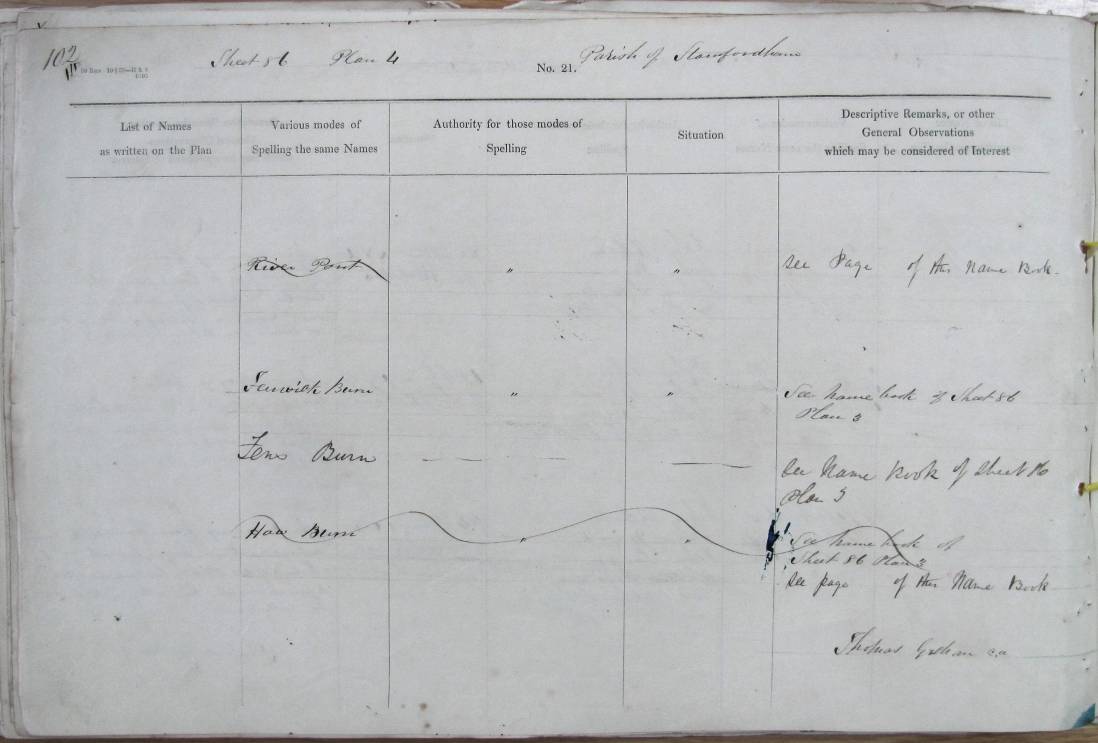 102
Sheet 86 Plan 4
No. 21.
Parish of Stamfordham
List of Names
as written on the Plan
Various modes of
Spelling the same Names
Authority for those modes of
Spelling
Situation
Descriptive Remarks, or other
General Observations
which may be considered of Interest
River Pont " " See Page of this Name Book.
Fenwick Burn " " See name book of Sheet 86
Plan 3
Fens Burn See Name Book of Sheet 86
Plan 3
How Burn " " See name book of
Sheet 86 Plan 3
See page of this Name Book
Thomas c.a